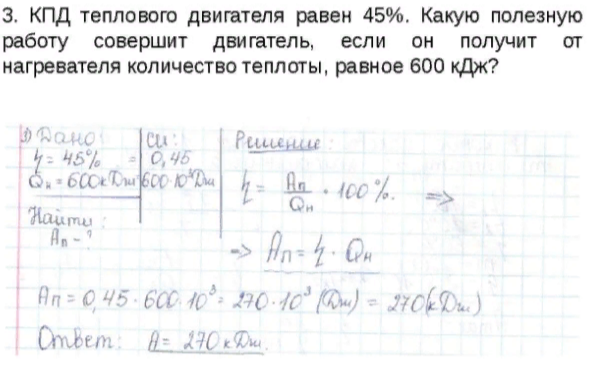 3. КПД теплового двигателя равен 45%. Какую полезную
работу совершит двигатель, если он получит от
нагревателя количество теплоты, равное 600 кДж?
1) Дано: СИ: Решение:
η = 45% = 0,45
Qн = 600кДж 600·10³Дж
η = Aп/Qн · 100%. =>
Найти:
Aп - ?
=> Aп = η · Qн
Aп = 0,45 · 600·10³ = 270·10³ (Дж) = 270(кДж)
Ответ: A = 270 кДж.